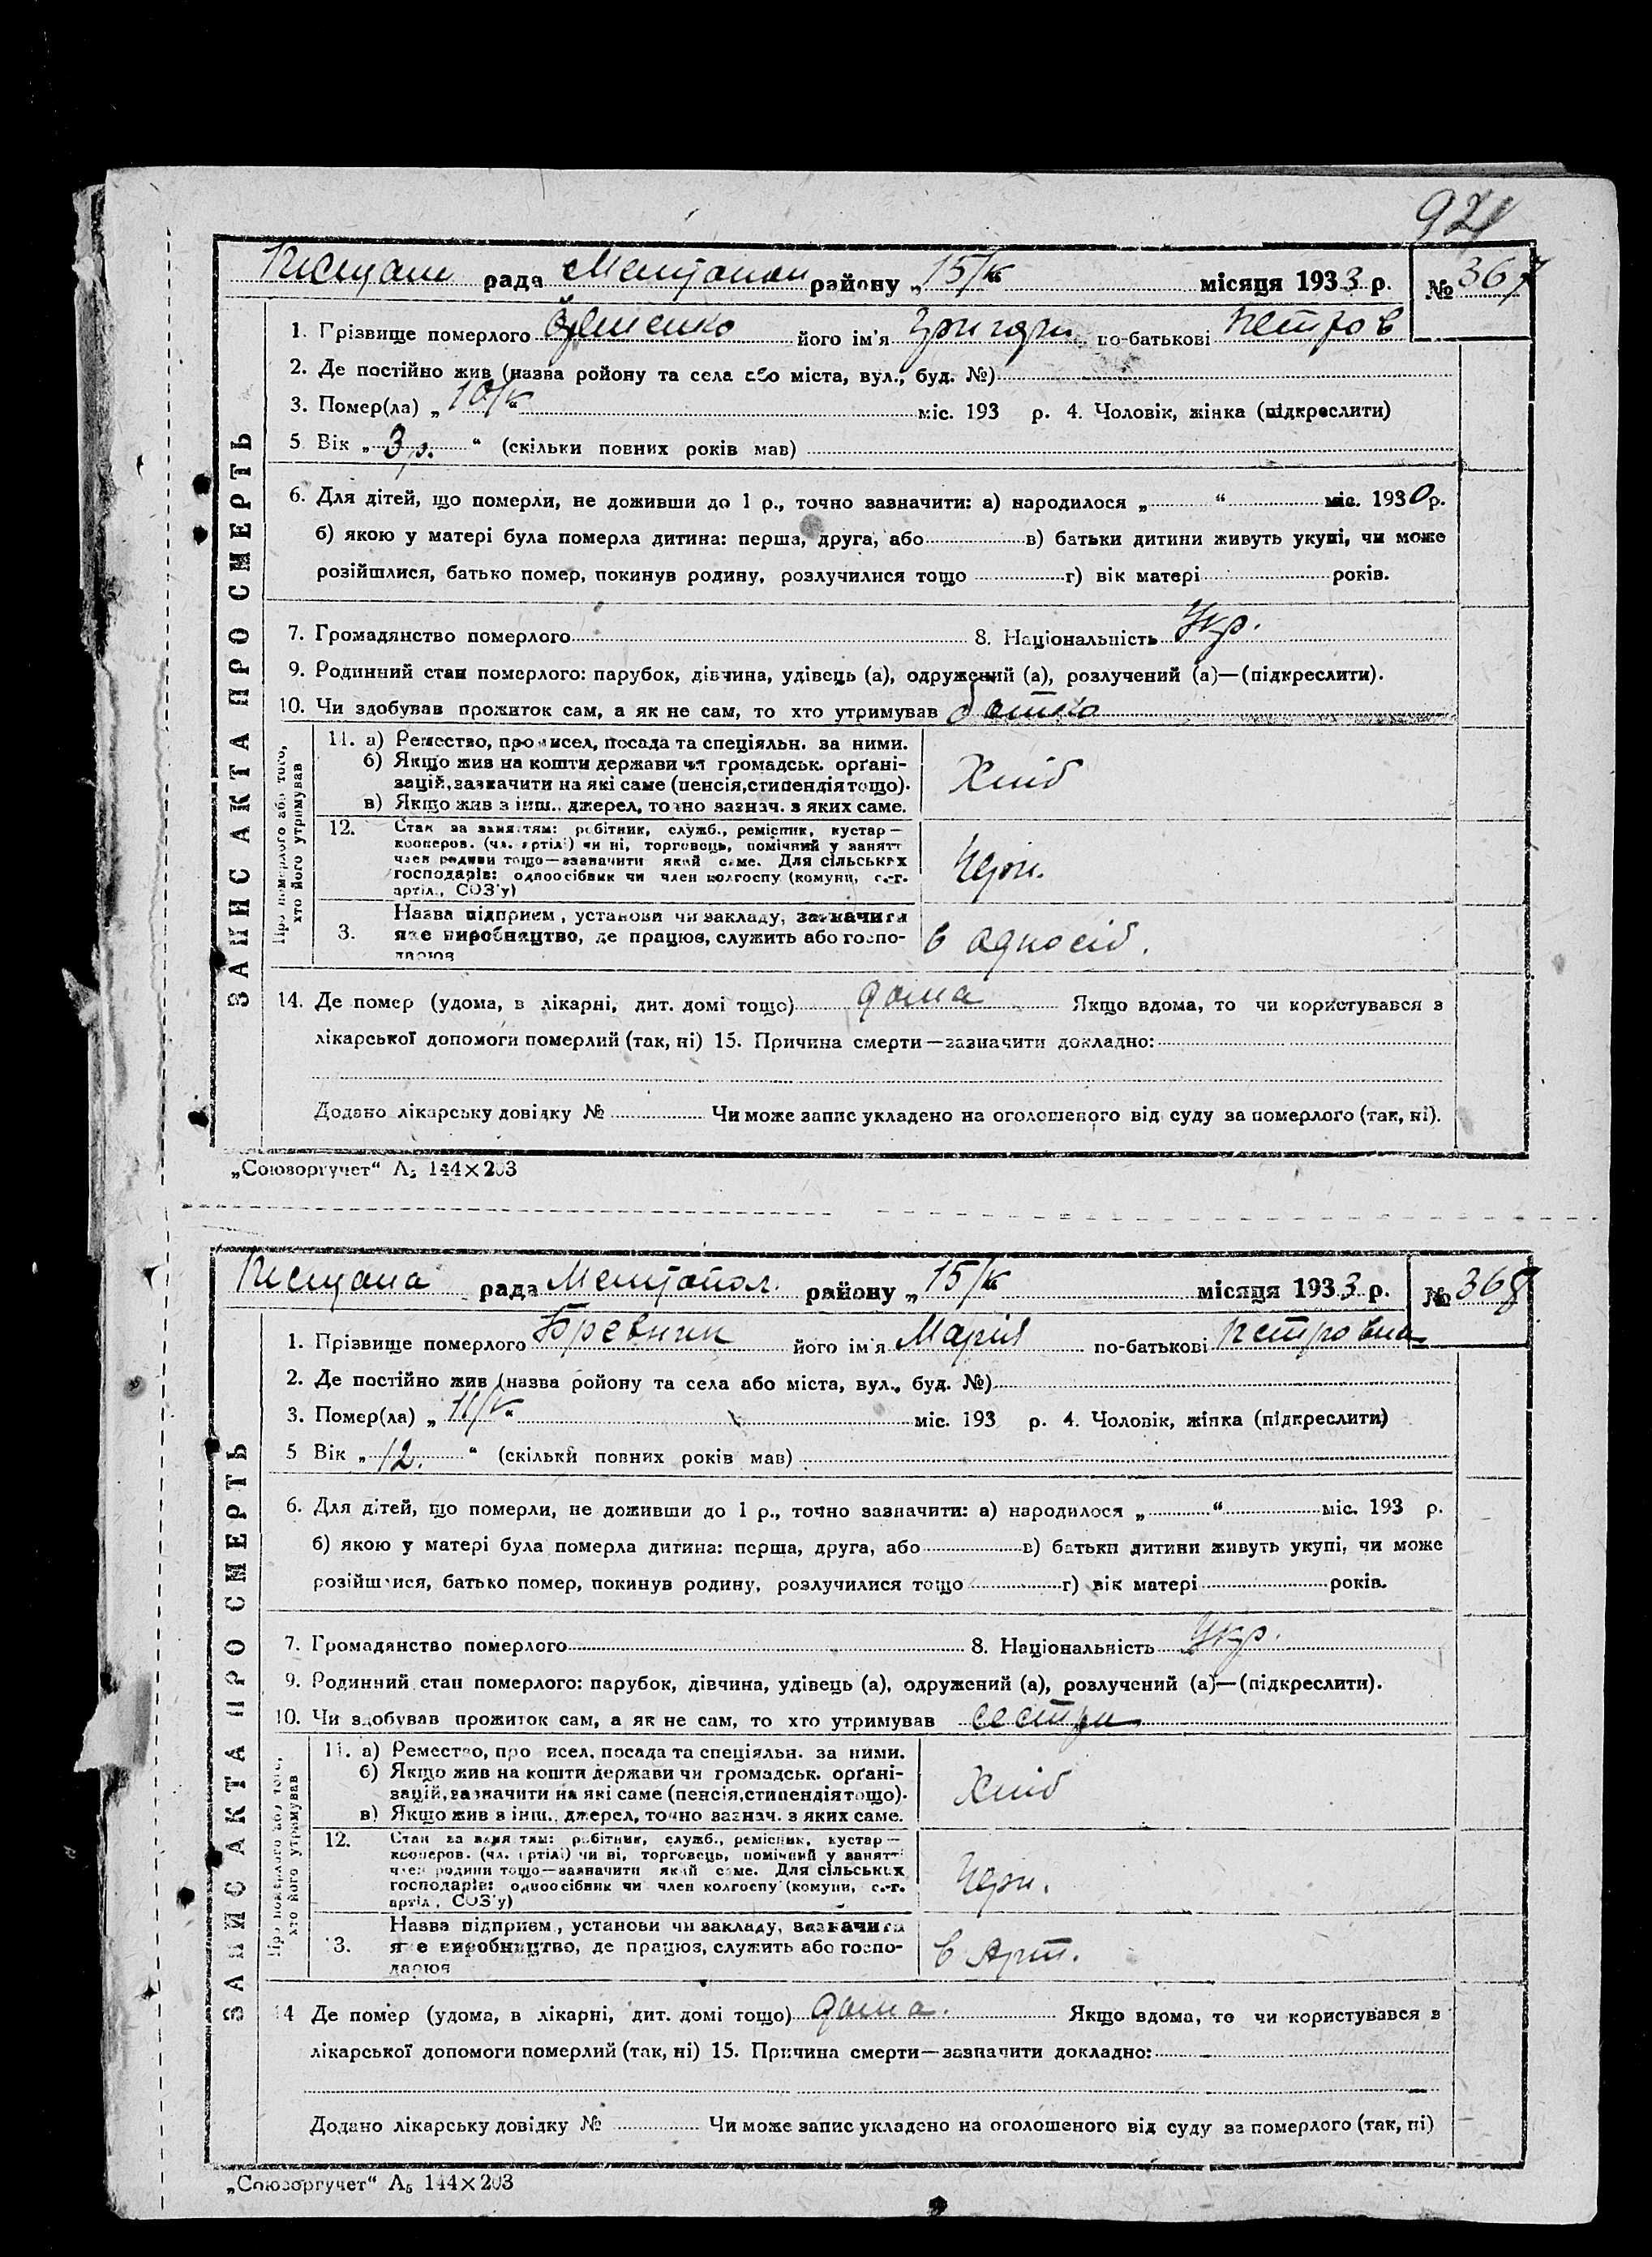 921
рада Мелітопол району „15/V“ місяця 1933 р. № 367
1. Прізвище померлого його ім'я Григорій по-батькові Петров
2. Де постійно жив (назва ройону та села або міста, вул., буд. №)
3. Помер(ла) „10/V“ міс. 193 р. 4. Чоловік, жінка (підкреслити)
5 Вік „3 р.“ (скільки повних років мав)
6. Для дітей, що померли, не доживши до 1 р., точно зазначити: а) народилося „ “ міс. 1930 р.
б) якою у матері була померла дитина: перша, друга, або в) батьки дитини живуть укупі, чи може
розійшлися, батько помер, покинув родину, розлучилися тощо г) вік матері років.
7. Громадянство померлого 8. Національність Укр.
9. Родинний стан померлого: парубок, дівчина, удівець (а), одружений (а), розлучений (а)—(підкреслити).
10. Чи здобував прожиток сам, а як не сам, то хто утримував батько
ЗАПИС АКТА ПРО СМЕРТЬ
Про померлого або того,
хто його утримував
11. а) Ремество, промисел, посада та спеціяльн. за ними.
б) Якщо жив на кошти держави чи громадськ. орґані-
зацій, зазначити на які саме (пенсія, стипендія тощо).
в) Якщо жив з інш. джерел, точно зазнач. з яких саме.
Хліб
12. Стан за заняттям: робітник, служб., ремісник, кустар—
кооперов. (чл. артілі) чи ні, торговець, помічний у занятт
член родини тощо—зазначити який саме. Для сільських
господарів: одноосібник чи член колгоспу (комуни, с.-г.
артіл., СОЗ'у)
3. Назва підприєм., установи чи закладу, зазначити
яке виробництво, де працює, служить або госпо-
дарює
в односіб.
14. Де помер (удома, в лікарні, дит. домі тощо) дома Якщо вдома, то чи користувався з
лікарської допомоги померлий (так, ні) 15. Причина смерти—зазначити докладно:
Додано лікарську довідку № Чи може запис укладено на оголошеного від суду за померлого (так, ні).
„Союзоргучет“ А₅ 144×203
рада Мелітопол. району „15/V“ місяця 1933 р. № 368
1. Прізвище померлого його ім'я Марія по-батькові Петровна
2. Де постійно жив (назва ройону та села або міста, вул., буд. №)
3. Помер(ла) „11/V“ міс. 193 р. 4. Чоловік, жінка (підкреслити)
5 Вік „12.“ (скільки повних років мав)
6. Для дітей, що померли, не доживши до 1 р., точно зазначити: а) народилося „ “ міс. 193 р.
б) якою у матері була померла дитина: перша, друга, або в) батьки дитини живуть укупі, чи може
розійшлися, батько помер, покинув родину, розлучилися тощо г) вік матері років.
7. Громадянство померлого 8. Національність Укр.
9. Родинний стан померлого: парубок, дівчина, удівець (а), одружений (а), розлучений (а)—(підкреслити).
10. Чи здобував прожиток сам, а як не сам, то хто утримував сестри
ЗАПИС АКТА ПРО СМЕРТЬ
Про померлого або того,
хто його утримував
11. а) Ремество, промисел, посада та спеціяльн. за ними.
б) Якщо жив на кошти держави чи громадськ. орґані-
зацій, зазначити на які саме (пенсія, стипендія тощо).
в) Якщо жив з інш. джерел, точно зазнач. з яких саме.
Хліб
12. Стан за заняттям: робітник, служб., ремісник, кустар—
кооперов. (чл. артілі) чи ні, торговець, помічний у занятт
член родини тощо—зазначити який саме. Для сільських
господарів: одноосібник чи член колгоспу (комуни, с.-г.
артіл., СОЗ'у)
3. Назва підприєм., установи чи закладу, зазначити
яке виробництво, де працює, служить або госпо-
дарює
в Арт.
14 Де помер (удома, в лікарні, дит. домі тощо) дома. Якщо вдома, то чи користувався з
лікарської допомоги померлий (так, ні) 15. Причина смерти—зазначити докладно:
Додано лікарську довідку № Чи може запис укладено на оголошеного від суду за померлого (так, ні)
„Союзоргучет“ А₅ 144×203